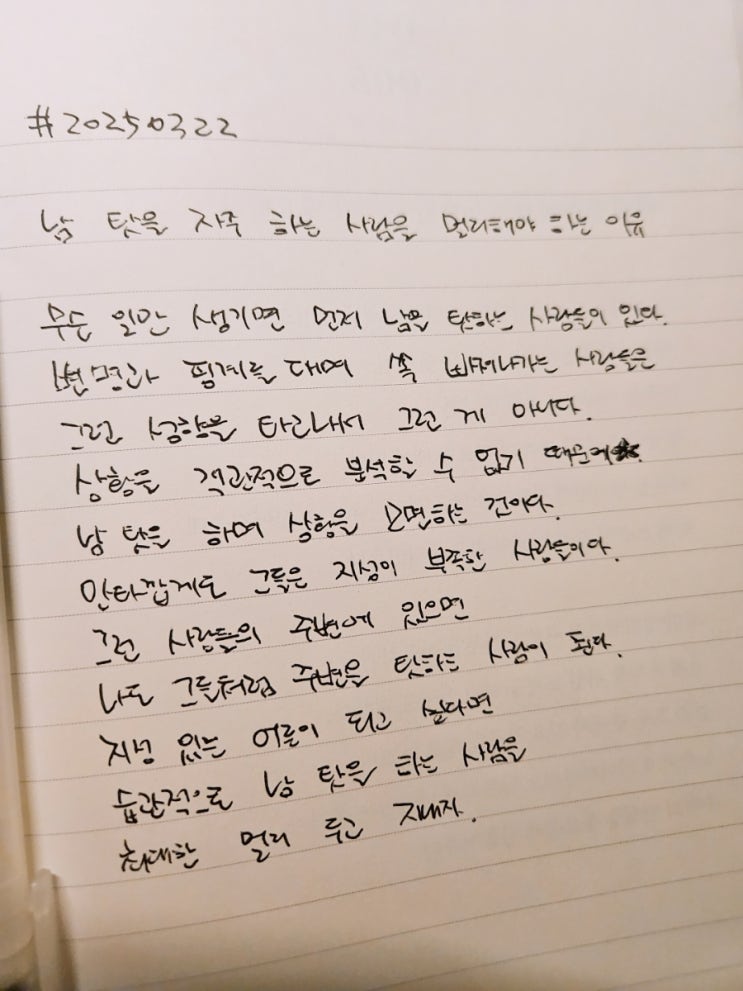 #20250322
남 탓을 자주 하는 사람을 멀리해야 하는 이유
무슨 일만 생기면 먼저 남을 탓하는 사람들이 있다.
변명과 핑계를 대며 쏙 빠져나가는 사람들은
그런 성향을 타고나서 그런 게 아니다.
상황을 객관적으로 분석할 수 없기 때문에
남 탓을 하며 상황을 모면하는 것이다.
안타깝게도 그들은 지성이 부족한 사람들이다.
그런 사람들의 주변에 있으면
나도 그들처럼 주변을 탓하는 사람이 된다.
지성 있는 어른이 되고 싶다면
습관적으로 남 탓을 하는 사람을
최대한 멀리 두고 지내자.